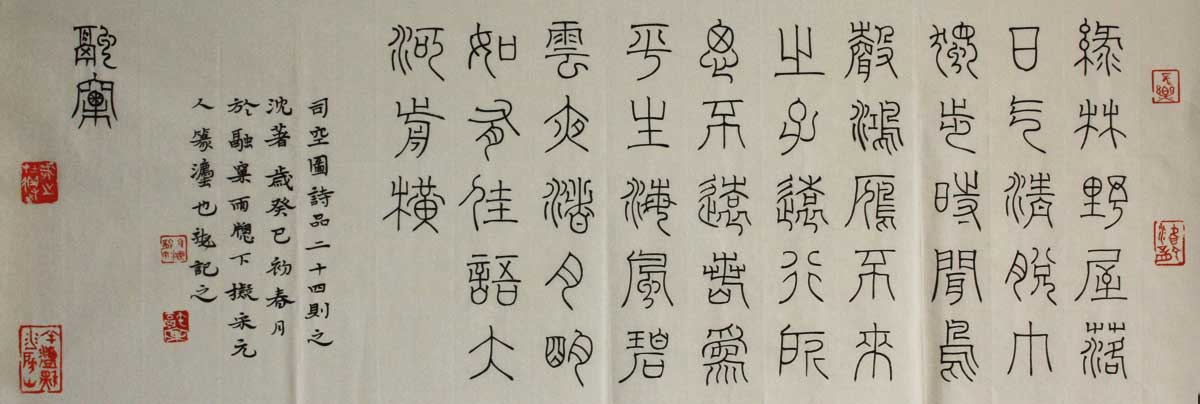 綠林野屋落
日气清脫巾
獨步時聞鳥
聲鴻鴈不來
之子遠行所
思不遠若為
平生海風碧
雲夜渚月明
如有佳語大
河前橫
司空圖詩品二十四則之
沈著歲癸巳初春月
於融雨牕下擬宋元
人篆灋也記之
融